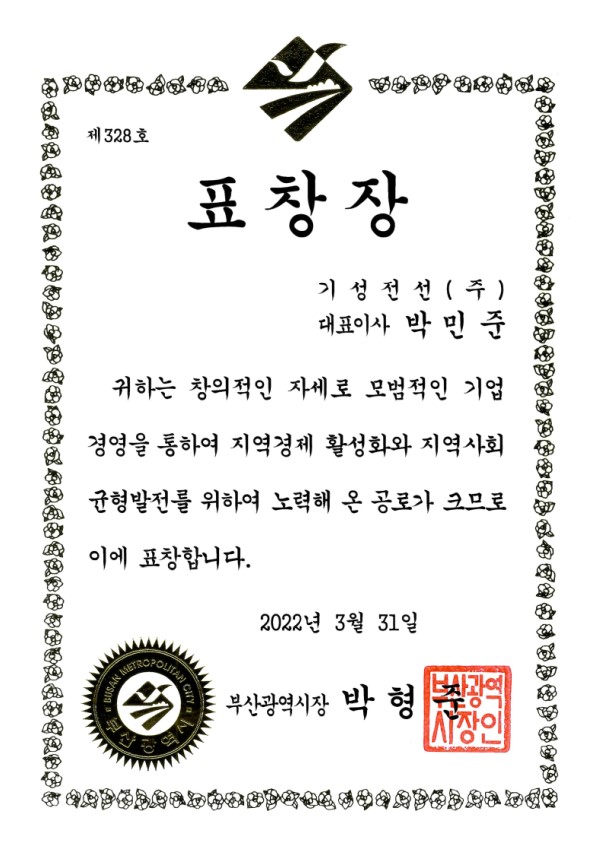 제328호
표창장
기성전선(주)
대표이사 박민준
귀하는 창의적인 자세로 모범적인 기업
경영을 통하여 지역경제 활성화와 지역사회
균형발전를 위하여 노력해 온 공로가 크므로
이에 표창합니다.
2022년 3월 31일
부산광역시장 박형준
부산광역
시장인
BUSAN METROPOLITAN CITY
부산광역시